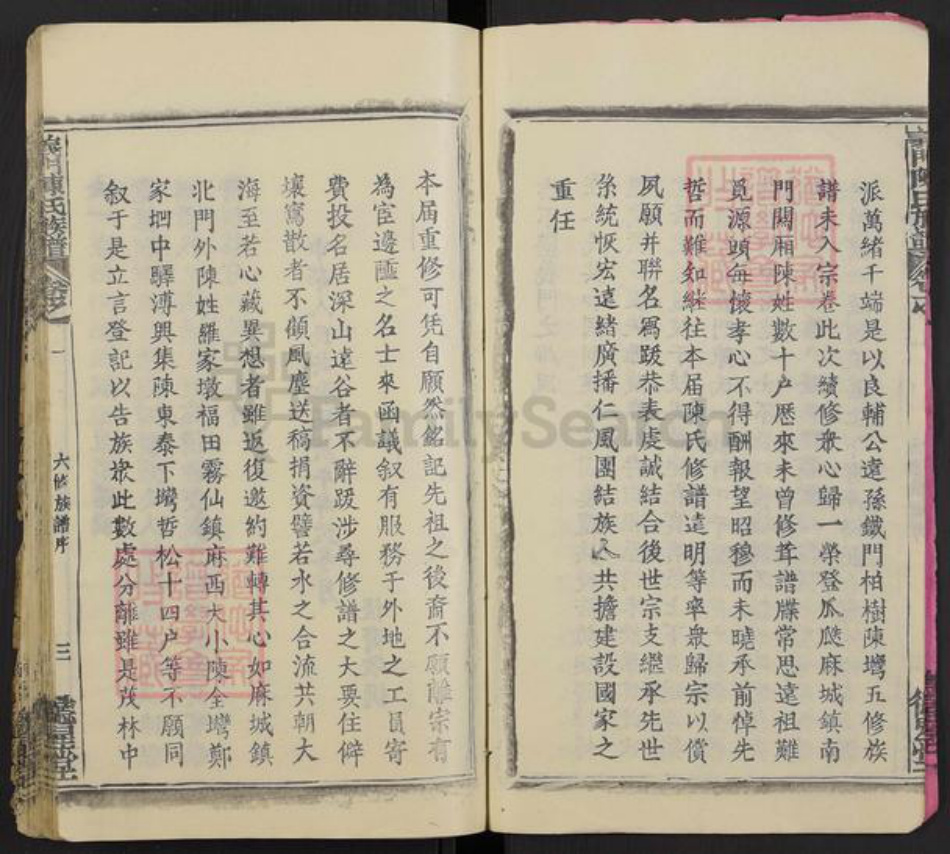 派萬緒千端是以良輔公遠孫鐵門柏樹陳塆五修族
譜未入宗卷此次續修衆心歸一榮登瓜瓞麻城鎮南
門関廂陳姓數十户歷來未曾修葺譜牒常思遠祖難
覓源頭每懷孝心不得酬報望昭穆而未曉承前悼先
哲而難知継往本届陳氏修譜遠明等率衆歸宗以償
夙願并聯名爲跋恭表虔誠結合後世宗支繼承先世
糸統恢宏遠緒廣播仁風團結族人共擔建設國家之
重任
本届重修可凭自願然銘記先祖之後裔不願離宗有
為宦邊疆之名士來函議叙有服務于外地之工員寄
費投名居深山遠谷者不辭跋涉尋修譜之大要住僻
壤窎散者不傾風塵送稿捐資譬若水之合流共朝大
海至若心藏異想者雖返復邀約難轉其心如麻城鎮
北門外陳姓羅家墩福田霧仙鎮麻西大小陳全塆鄭
家垇中驛溥興集陳東泰下塆哲松十四户等不願同
叙于是立言登記以告族衆此數處分離雖是茂林中
陳氏族譜
六修族譜序
三
FamilySearch